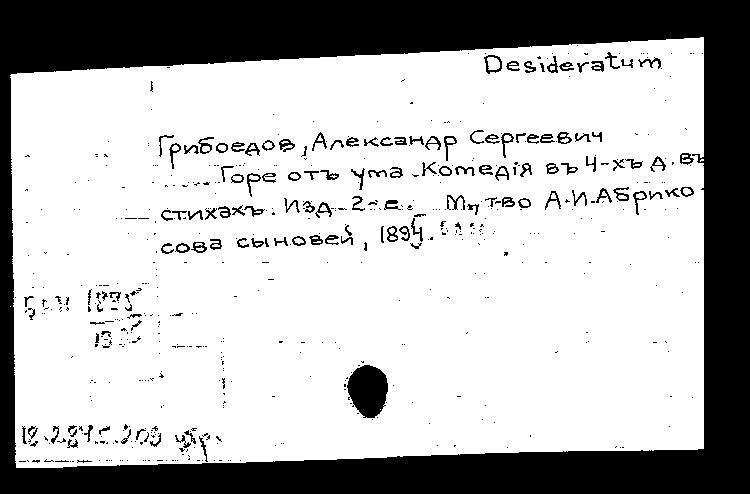 Desideratum
Грибоедов, Александр Сергеевич
Горе отъ ума. Комедія въ 4-хъ д. въ
стихахъ. Изд. 2-е. М., т-во А.И. Абрико-
сова сыновей, 1895.
1895
18.284.5.209